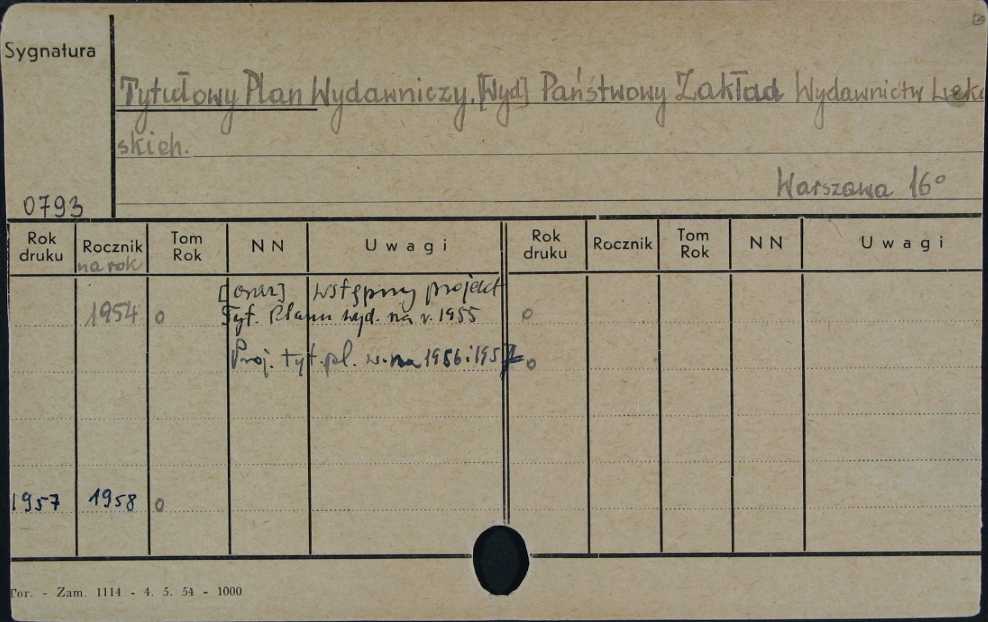 Sygnatura
Tytułowy Plan Wydawniczy. [Wyd] Państwowy Zakład Wydawnictw Leka
skich.
Warszawa 16°
0793
Rok druku Rocznik Tom Rok NN Uwagi Rok druku Rocznik Tom Rok NN Uwagi
na rok
[oraz] wstępny projekt
1954 o Tyt. Planu wyd. na r. 1955 o
Proj. tyt. pl. w. na 1956 i 1957 o
1957 1958 o
Tor. - Zam. 1114 - 4. 5. 54 - 1000